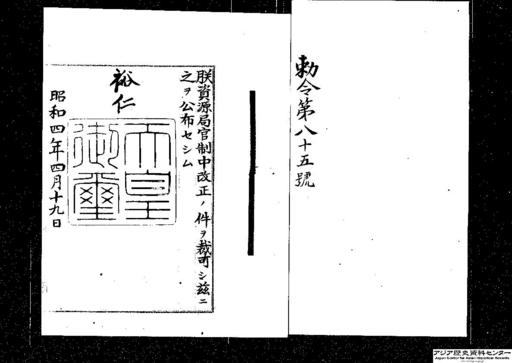 勅令第八十五號
朕資源局官制中改正ノ件ヲ裁可シ玆ニ
之ヲ公布セシム
裕仁
天皇
御璽
昭和四年四月十九日
アジア歴史資料センター
Japan Center for Asian Historical Records